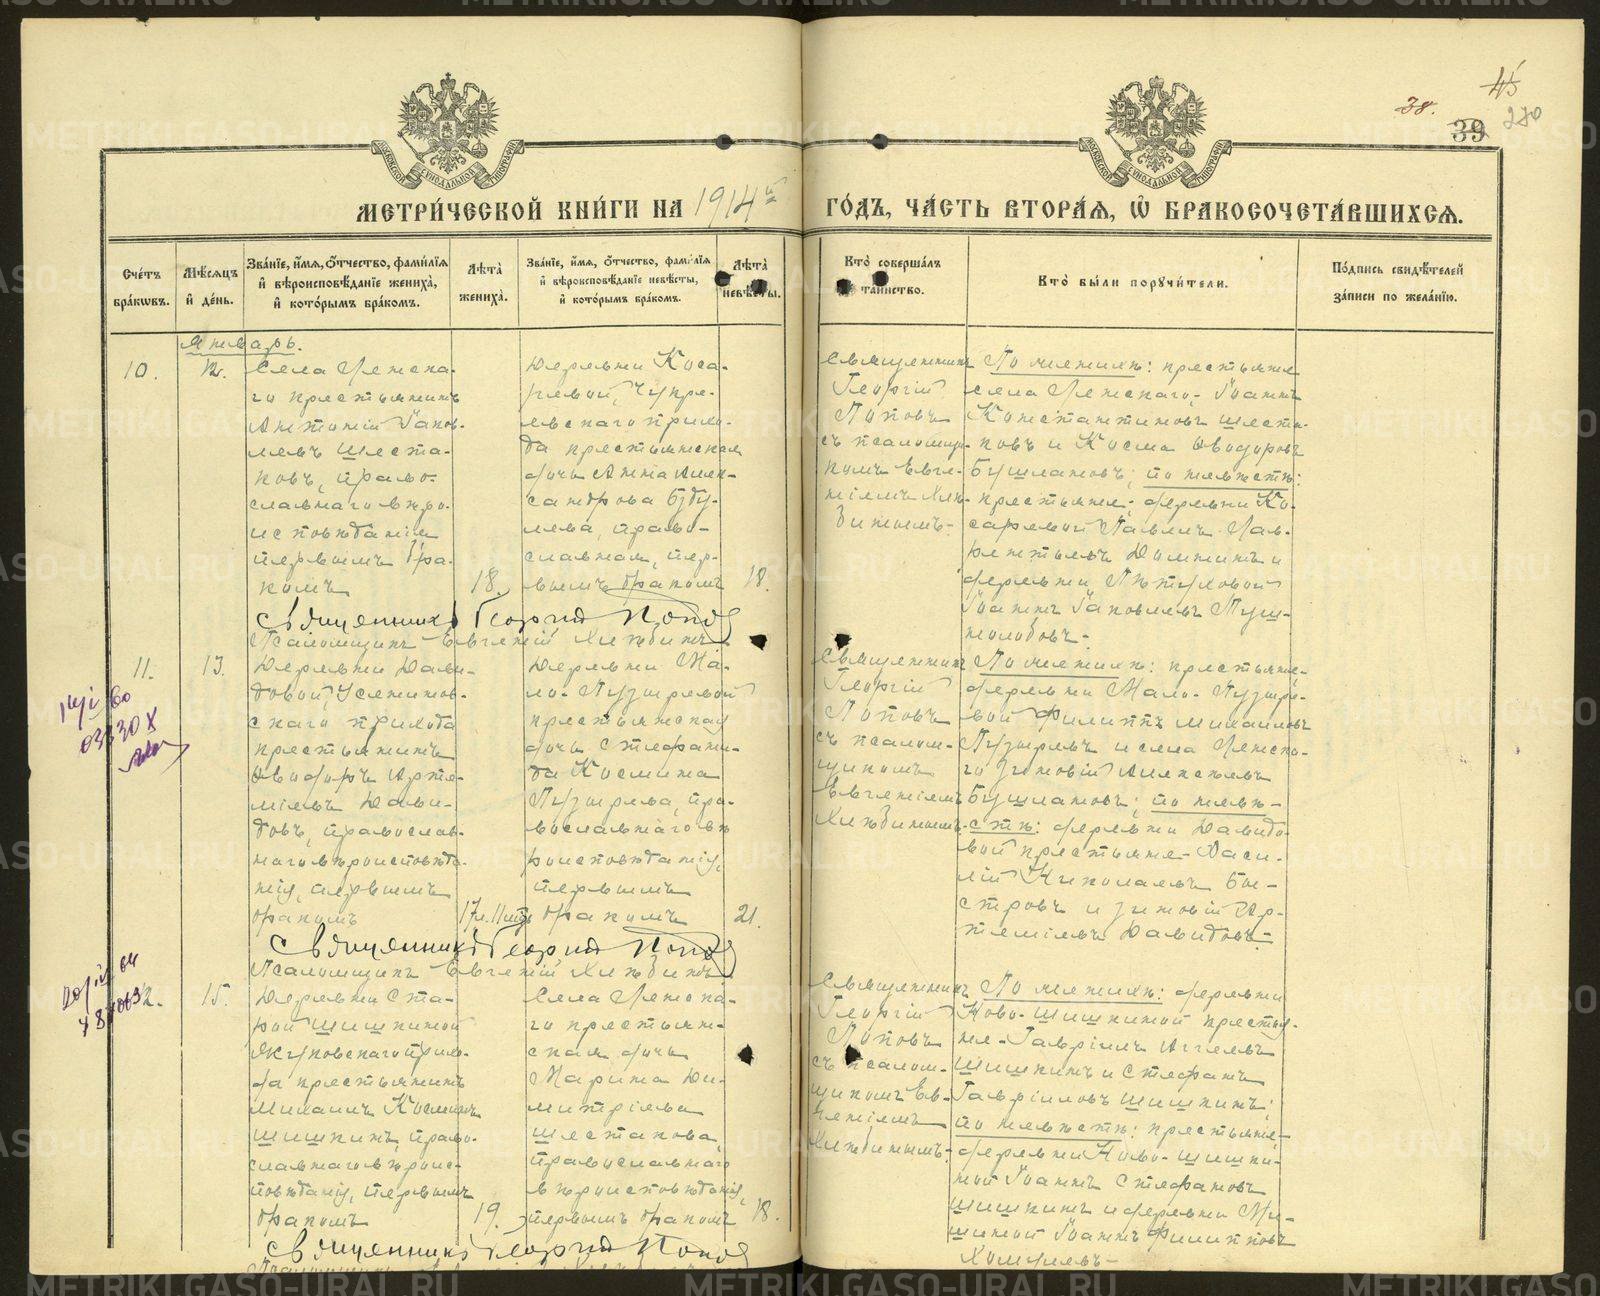 45
38.
39
270
МЕТРИ́ЧЕСКОЙ КНИ́ГИ НА 1914й
ГО́ДЪ, ЧА́СТЬ ВТОРА́Я, Ѡ҆ БРАКОСОЧЕТА́ВШИХСЯ.
Сче́тъ бра́кѡвъ.
Мѣ́сяцъ и҆ де́нь.
Зва́нїе, и҆́мя, о҆́тчество, фами́лїя
и҆ вѣроисповѣ́данїе жениха̀,
и҆ кото́рымъ бра́комъ.
Лѣ́та̀ жениха̀.
Зва́нїе, и҆́мя, о҆́тчество, фами́лїя
и҆ вѣроисповѣ́данїе невѣ́сты,
и҆ кото́рымъ бра́комъ.
Лѣ́та̀ невѣ́сты.
Кто̀ соверша́лъ
таинство.
Кто̀ бы́ли порꙋчи́тели.
По́дпись свидѣ́телей
за́писи по жела́нїю.
Январь.
10.
12.
Села
го крестьянинъ
Антонiй Iаков-
левъ Шеста-
ковъ, право-
славнаго вѣро-
исповѣданiя
первымъ бра-
комъ
18.
Деревни Коса-
ревой,
скаго прихо-
да крестьянская
дочь Анна Алек-
сандрова
право-
славная, пер-
вымъ бракомъ
18.
Священникъ
Георгiй
Поповъ
съ псаломщи-
комъ Евге-
нiемъ Хлѣ-
бинымъ.
По женихѣ: крестьяне
села Iоаннъ
Константиновъ Шеста-
ковъ и Косма Ѳеодоровъ
Бушлановъ; по невѣстѣ:
крестьяне: деревни Ко-
саревой Павелъ Лав-
рентьевъ и
деревни Пѣтуховой
Iоаннъ Iаковлевъ
Священникъ Георгiй Поповъ
Псаломщикъ Евгенiй Хлѣбинъ
11.
13.
Деревни Дави-
довой, Усениновс-
скаго прихода
крестьянинъ
Ѳеодоръ Арте-
мiевъ Дави-
довъ, православ-
наго вѣроисповѣда-
нiя, первымъ
бракомъ
17 л. 11 мѣс.
Деревни Ма-
ло-Пузыревой
крестьянская
дочь Стефани-
да Космина
Пузырева, пра-
вославнаго вѣ-
роисповѣданiя,
первымъ
бракомъ
21.
Священникъ
Георгiй
Поповъ
съ псалом-
щикомъ
Евгенiемъ
Хлѣбинымъ.
По женихѣ: крестьяне:
деревни Мало-Пузыре-
вой Филиппъ Михаиловъ
Пузыревъ и села
го Зиновiй Алексѣевъ
Бушлановъ; по невѣ-
стѣ: деревни Давидо-
вой крестьяне Васи-
лiй Николаевъ Бы-
стровъ и Зиновiй Ар-
темiевъ Давидовъ.
Священникъ Георгiй Поповъ
Псаломщикъ Евгенiй Хлѣбинъ
12.
15.
Деревни Ста-
рой Шишкиной
прихо-
да крестьянинъ
Михаилъ Косминъ
Шишкинъ, право-
славнаго вѣроис-
повѣданiя, первымъ
бракомъ
19.
Села
го крестьян-
ская дочь
Марина Ди-
митрiева
Шестакова,
православнаго
вѣроисповѣданiя,
первымъ бракомъ
18.
Священникъ
Георгiй
Поповъ
съ псалом-
щикомъ Ев-
генiемъ
Хлѣбинымъ.
По женихѣ: деревни
Ново-Шишкиной крестья-
не Гаврiилъ Аггеевъ
Шишкинъ и Стефанъ
Гаврiиловъ Шишкинъ;
по невѣстѣ: крестьяне,
деревни Ново-Шишки-
ной Iоаннъ Стефановъ
Шишкинъ и деревни Ми-
шиной Iоаннъ Филипповъ
Священникъ Георгiй Поповъ
METRIKI.GASO-URAL.RU